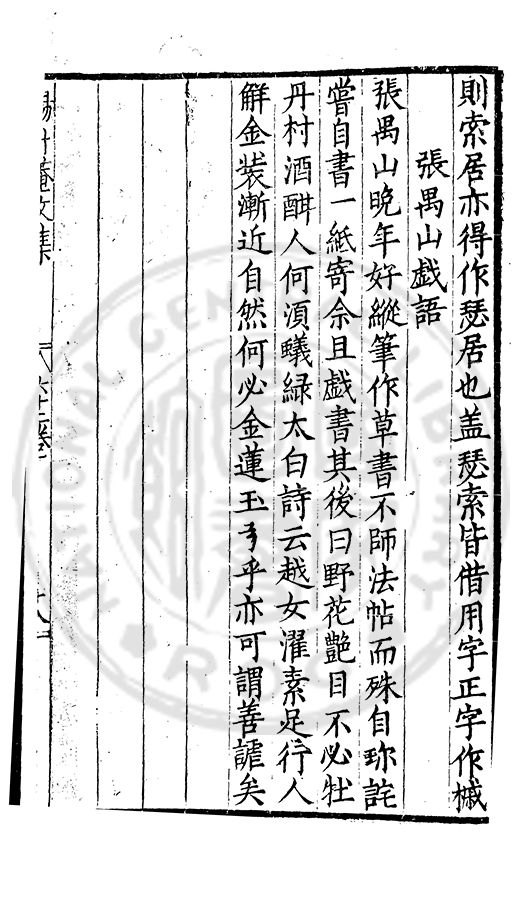 則索居亦得作瑟居也盖瑟索皆借用字正字作槭
張禺山戲語
張禺山晚年好縱筆作草書不師法帖而殊自珎詫
嘗自書一紙寄余且戲書其後曰野花艶目不必牡
丹村酒酣人何湏蟻緑太白詩云越女濯素足行人
解金装漸近自然何必金蓮玉弓乎亦可謂善謔矣